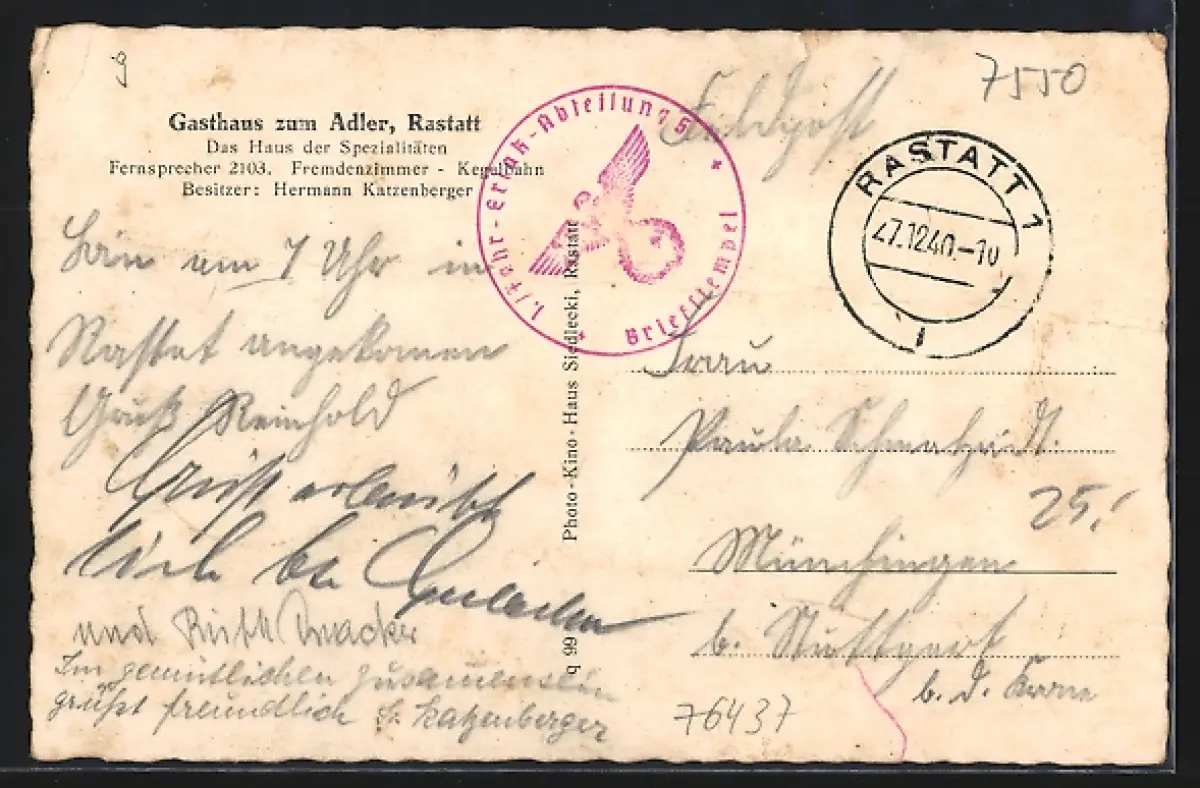 9
7550
Gasthaus zum Adler, Rastatt
Das Haus der Spezialitäten
Fernsprecher 2103. Fremdenzimmer - Kegelbahn
Besitzer: Hermann Katzenberger
Feldpost
1./Fahr-Ersak-Abteilung 5 *
Briefstempel
RASTATT 1
27.12.40.-10
i
um 7 Uhr in
Rastat angekomen
Gruß Reinhold
und Ruth
Im gemütlichen zusamensein
grüßt freundlich Katzenberger
Photo-Kino-Haus Siedlecki, Rastatt
q 99
Frau
Paula
25.-
Münchingen
b. Stuttgart
b. d. Krone
76437